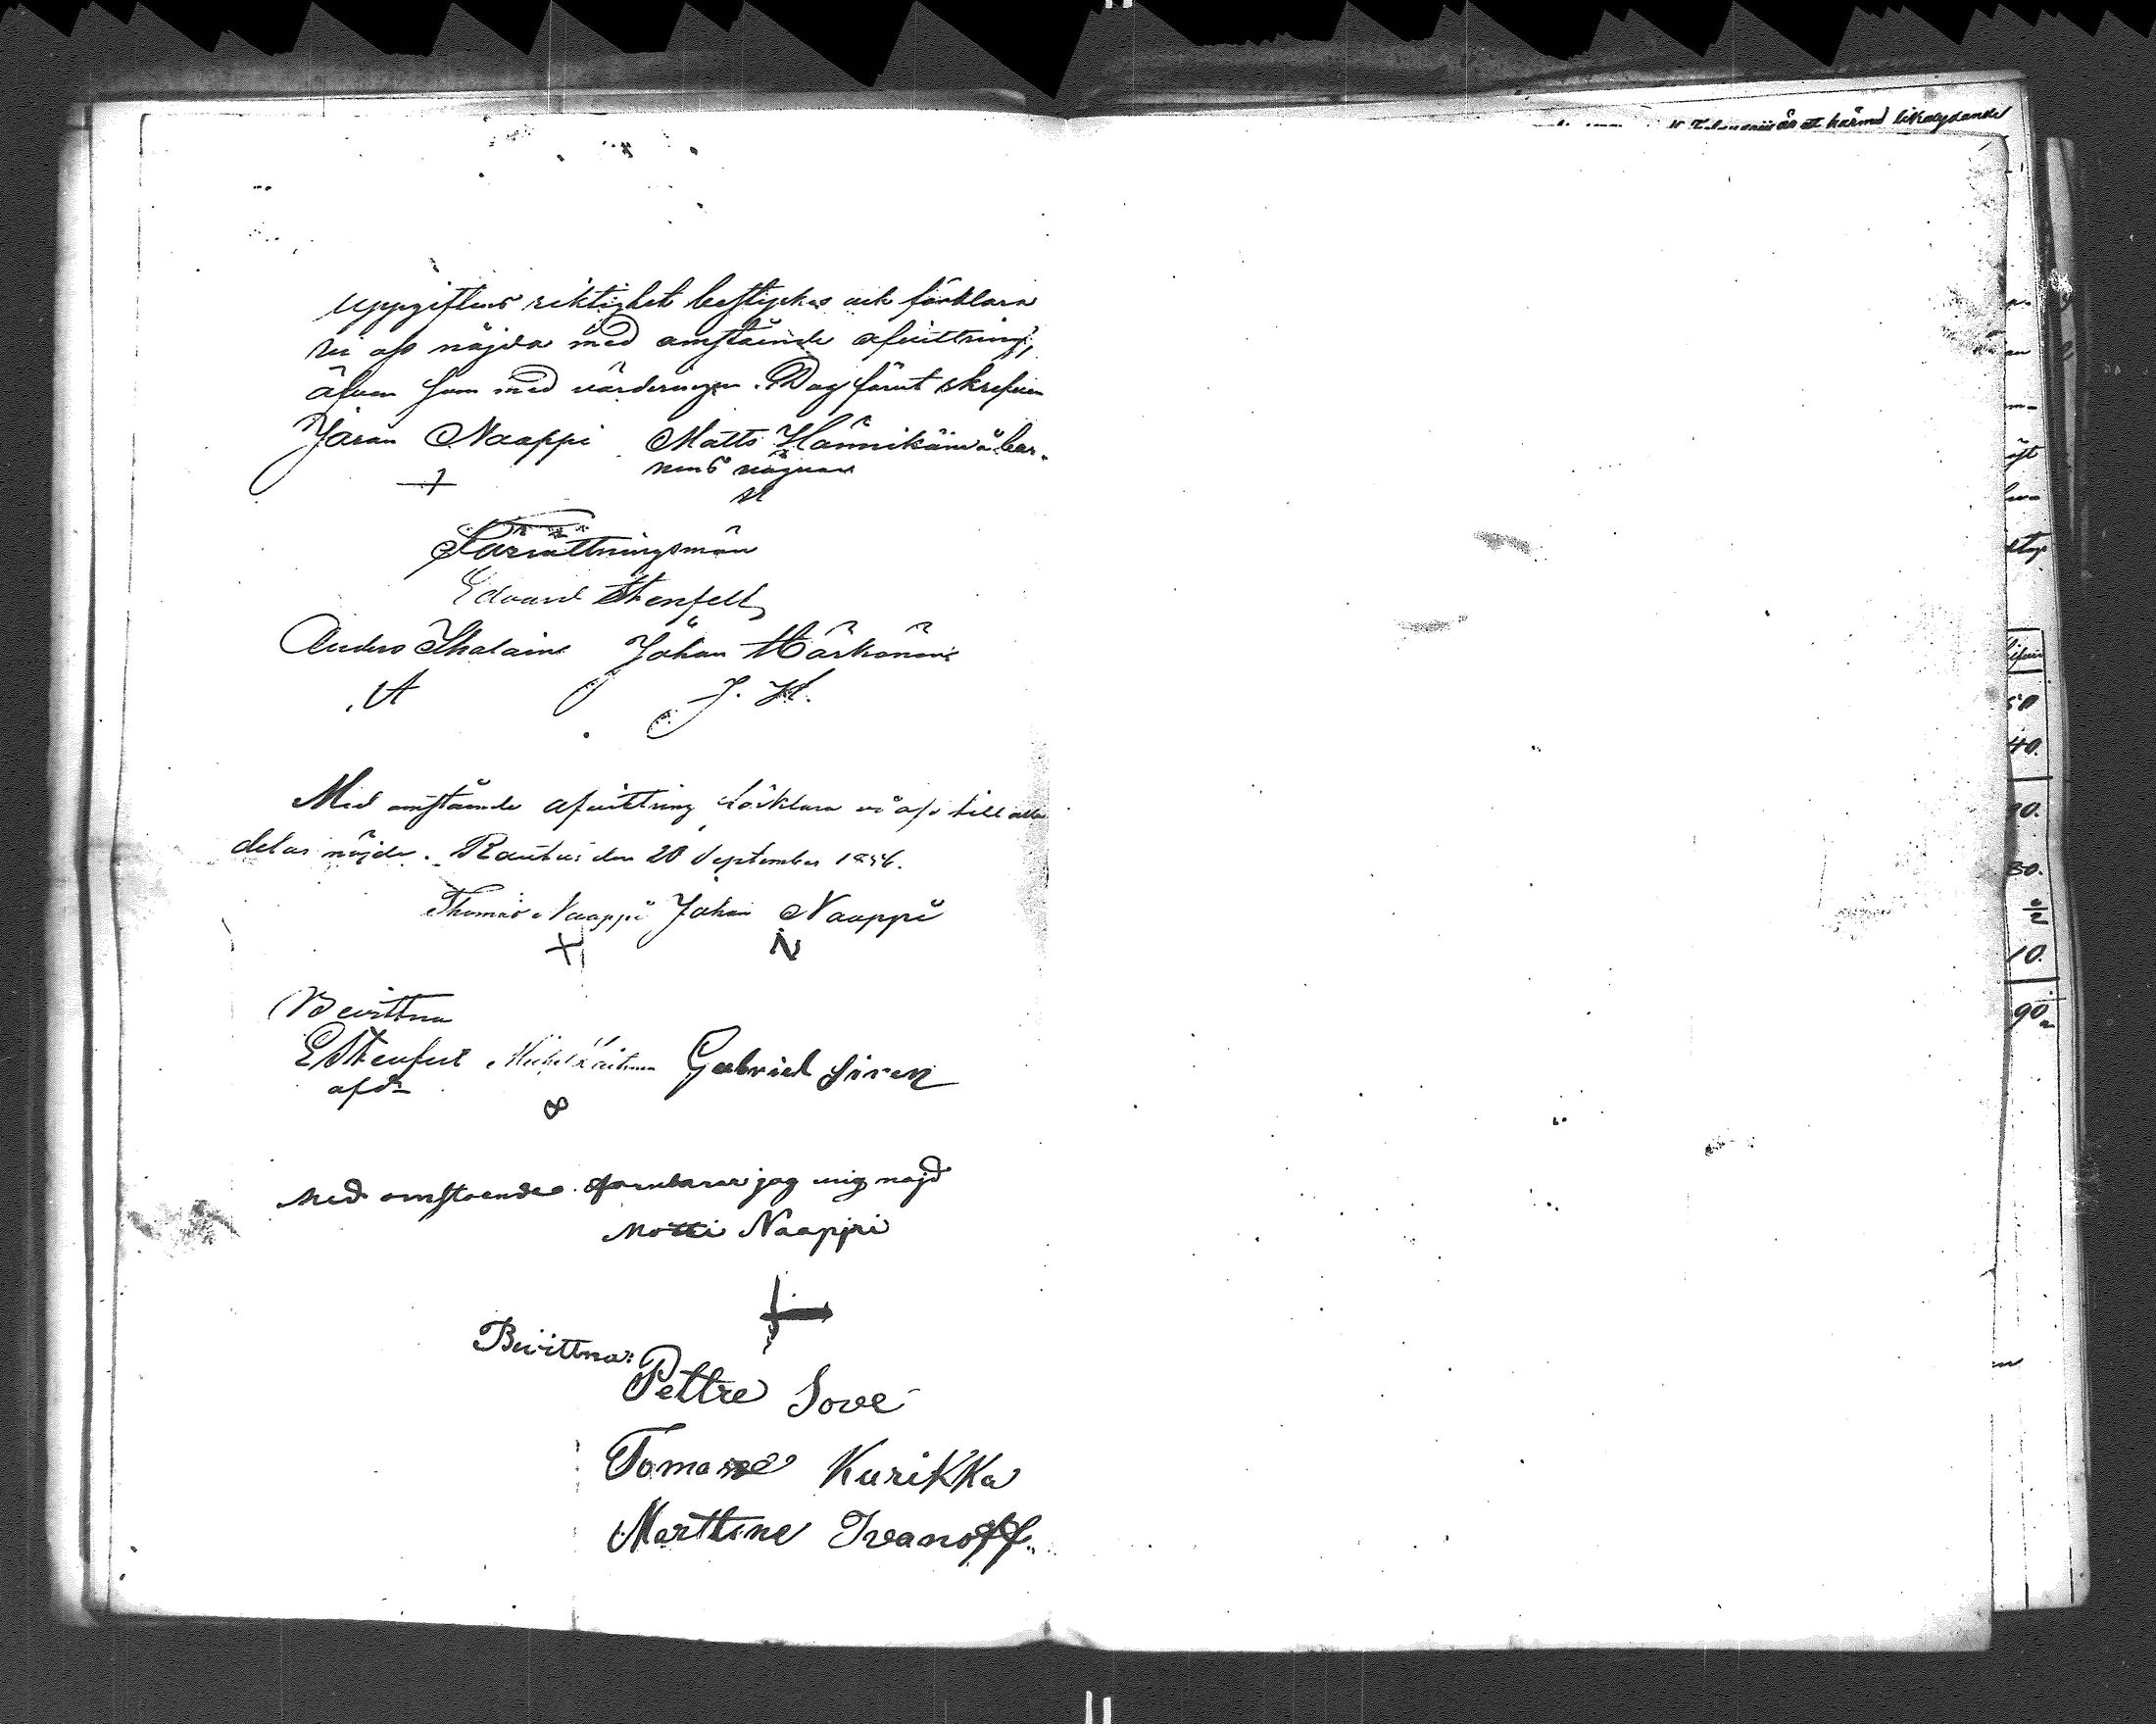 Uppgiftens riktighet bestyrkes och förklara
vi oss nöjda med omstående afvittring,
äfven som med värderingen. Dag förut skrefven
Jöran Naappi Matts Hännikäin å bar-
nens vägnar
Förrättningsmän
Edvard Stenfelt
Anders Ihalain Johan Härkönen
A J. H.
Med omstående afvittring förklara vi oss till alla
delar nöjda. Rautus den 20 September 1856.
Thomas Naappi Johan Naappi
X N
Bevittna
E Stenfelt Michel Gabriel Siren
Med omstaende jag mig najd
Motti Naappi
Bevittna:
Pettre Sove
Tomase Kurikka
Marttine Ivanoff.
är ett härmed likalydande
50
40.
90.
30.
10.
90